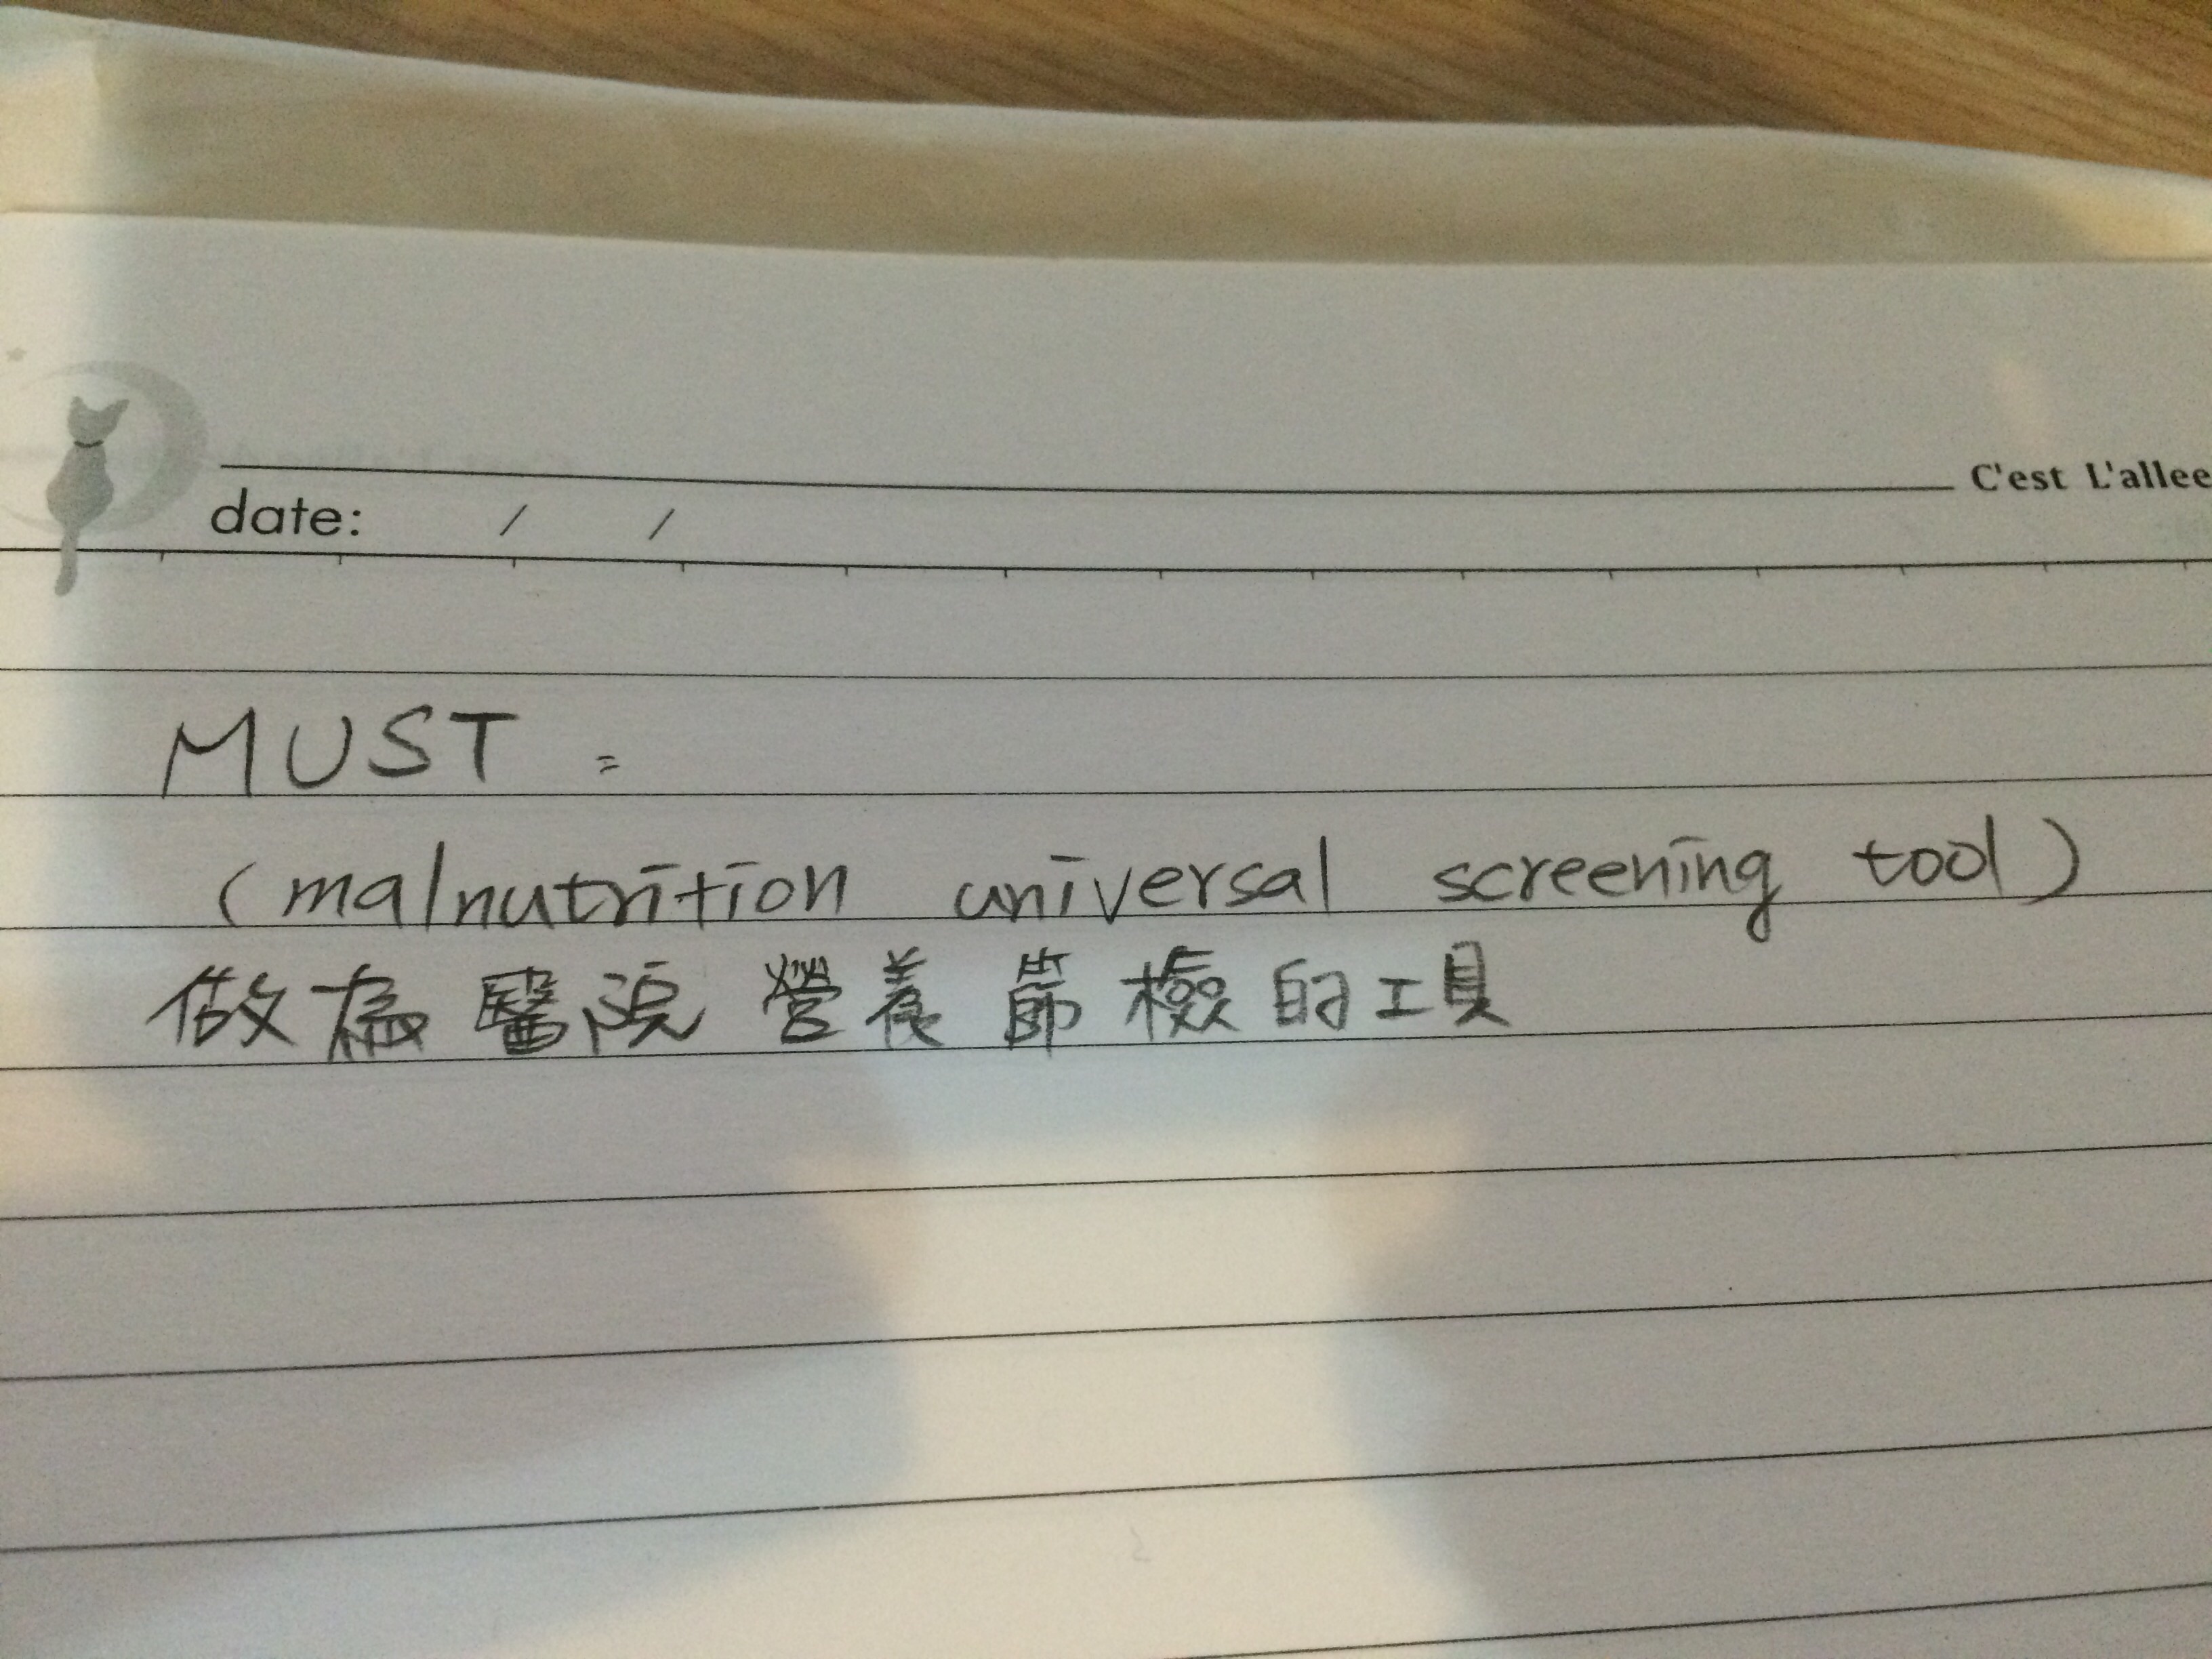 C'est L'allee
date: / /
MUST =
(malnutrition universal screening tool)
做為醫院營養節檢的工具